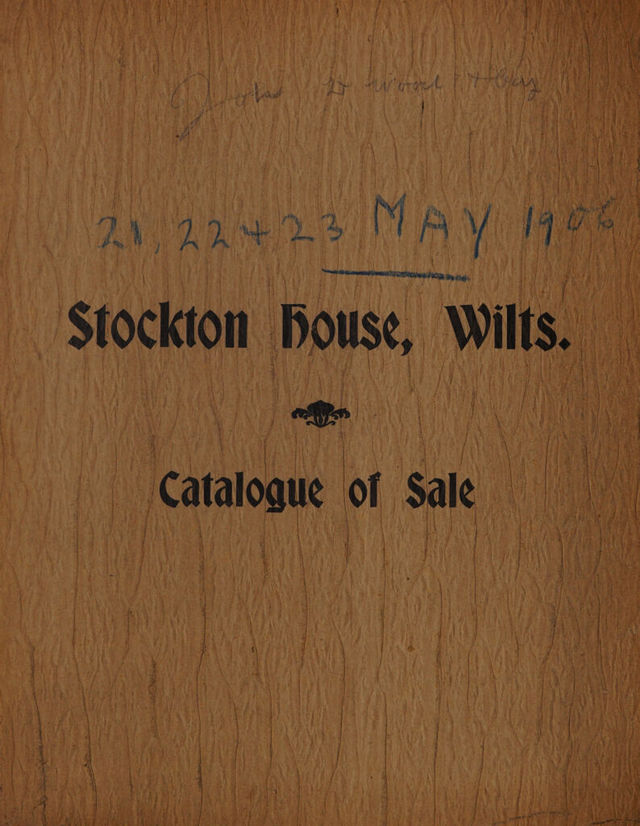 John D Wood & Co
21, 22 + 23 MAY 1906
Stockton House, Wilts.
Catalogue of Sale